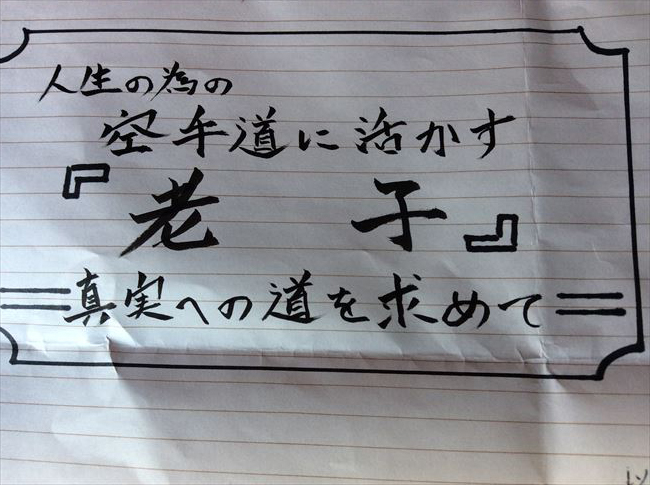 人生の為の
空手道に活かす
『老子』
=真実への道を求めて=